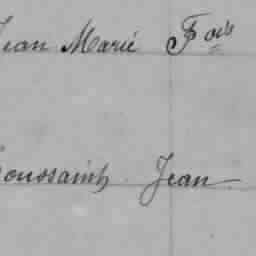 Jean Marie Fois
Toussaint Jean